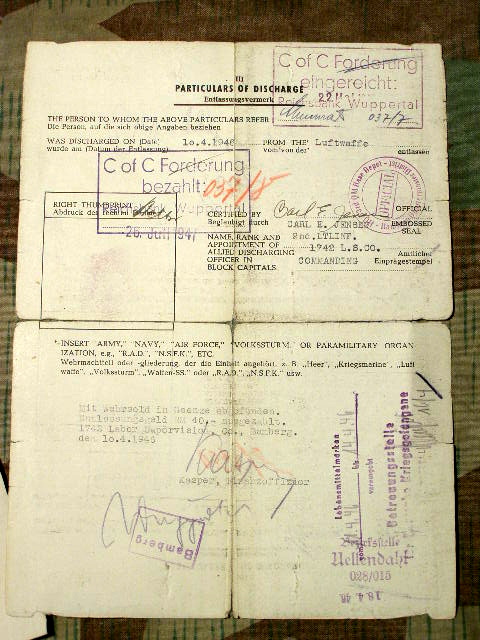 III
PARTICULARS OF DISCHARGE
Entlassungsvermerk
C of C Forderung
eingereicht:
22
Reichsbank Wuppertal
037/7
THE PERSON TO WHOM THE ABOVE PARTICULARS REFER
Die Person, auf die sich obige Angaben beziehen
WAS DISCHARGED ON (Date) 10.4.1946 FROM THE* Luftwaffe
wurde am (Datum der Entlassung) vom/von der* entlassen
C of C Forderung
bezahlt: 037/8
Wuppertal
26. Juli 1947
RIGHT THUMBPRINT
Abdruck des rechten
CERTIFIED BY Carl E. Jensen OFFICIAL
Beglaubigt durch CARL E. JENSEN EMBOSSED
SEAL
OFFICIAL
NAME, RANK AND 2nd.LT.INF.
APPOINTMENT OF 1742 L.S.CO. Amtlicher
ALLIED DISCHARGING COMMANDING Einprägestempel
OFFICER IN
BLOCK CAPITALS
*INSERT "ARMY," "NAVY," "AIR FORCE," "VOLKSSTURM," OR PARAMILITARY ORGAN
IZATION, e.g., "R.A.D.", "N.S.F.K.", ETC.
Wehrmachtteil oder -gliederung, der die Einheit angehört, z. B. „Heer", „Kriegsmarine", „Luft
waffe", „Volkssturm", „Waffen-SS." oder „R.A.D.", „N.S.F.K." usw.
Mit Wehrsold in Grenze abgefunden.
Entlassungsgeld RM 40,- ausgezahlt.
1742 Labor Supervision, Co., Bamberg.
den 10.4.1946
Kasper,
Bamberg
Lebensmittelmarken
versorgt
Betreuungsstelle
Kriegsgefangene
Uellendahl
028/015
18.4.46